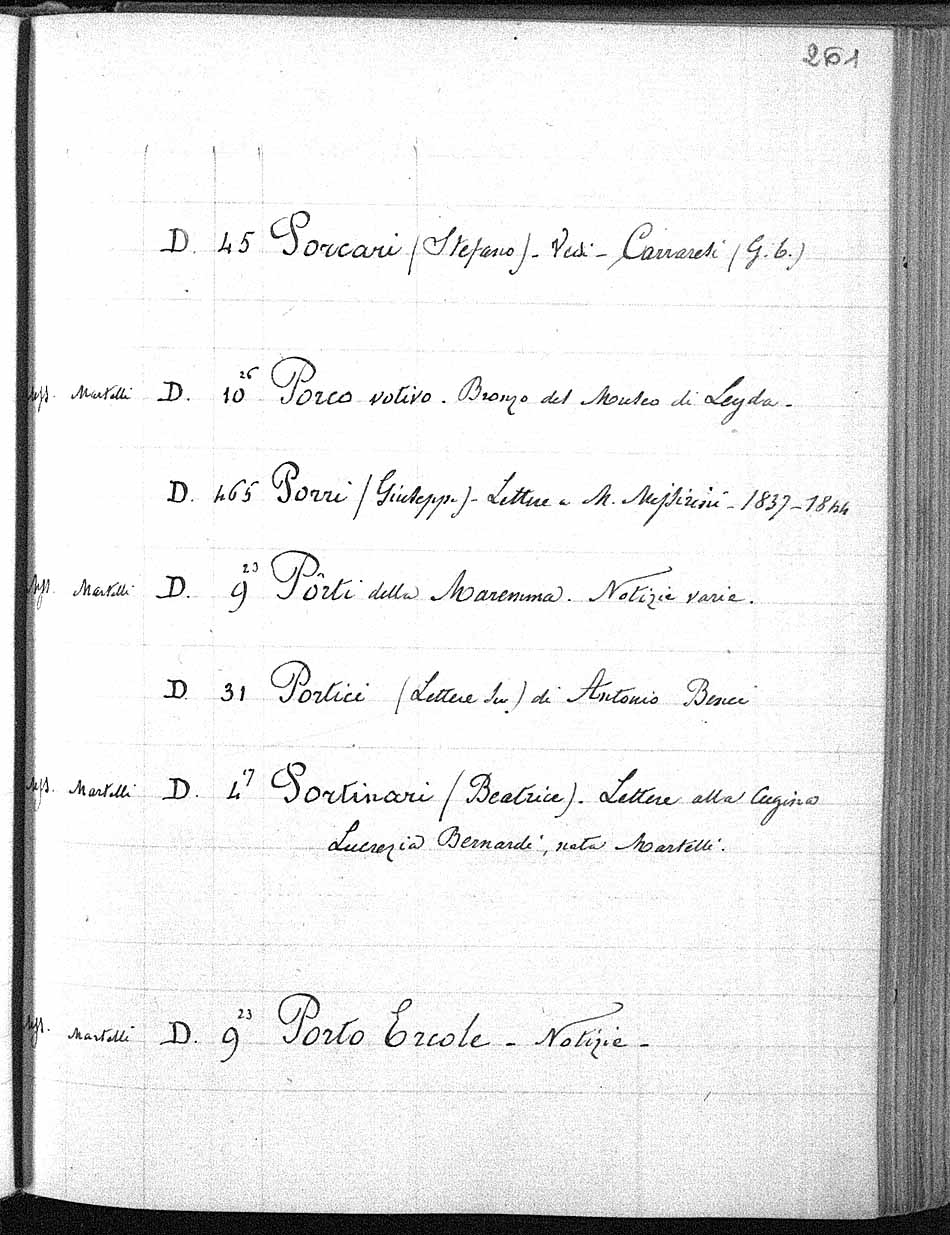 261
D. 45 Porcari (Stefano) - Vedi - Carraresi (G. C.)
Mss. Martelli D. 10 26 Porco votivo. Bronzo del Museo di Leyda -
D. 465 Porri (Giuseppe) - Lettere a M. Missirini - 1837-1844
Mss. Martelli D. 9 23 Pôrti della Maremma. Notizie varie.
D. 31 Portici (Lettere su) di Antonio Benci
Mss. Martelli D. 4 17 Portinari (Beatrice). Lettere alla Cugina
Lucrezia Bernardi, nata Martelli.
Mss. Martelli D. 9 23 Porto Ercole - Notizie -